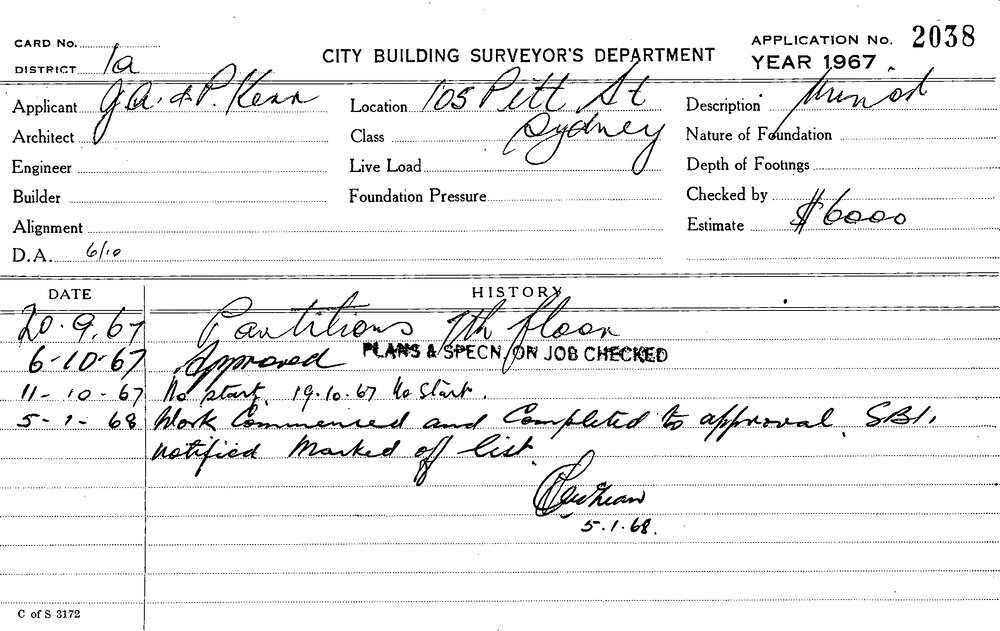 CARD No.
CITY BUILDING SURVEYOR'S DEPARTMENT
APPLICATION No. 2038
DISTRICT 1a
YEAR 1967
Applicant J.A. & P. Kenn
Location 105 Pitt St
Sydney
Description
Architect
Class
Nature of Foundation
Engineer
Live Load
Depth of Footings
Builder
Foundation Pressure
Checked by
Alignment
Estimate $6000
D.A. 6/10
DATE
HISTORY
20.9.67 Partitions 7th floor
6-10-67 Approved PLANS & SPECN. ON JOB CHECKED
11-10-67 No start. 19.10.67 No Start.
5-1-68 Work Commenced and Completed to approval. SBI.
notified Marked off list.
5.1.68.
C of S 3172